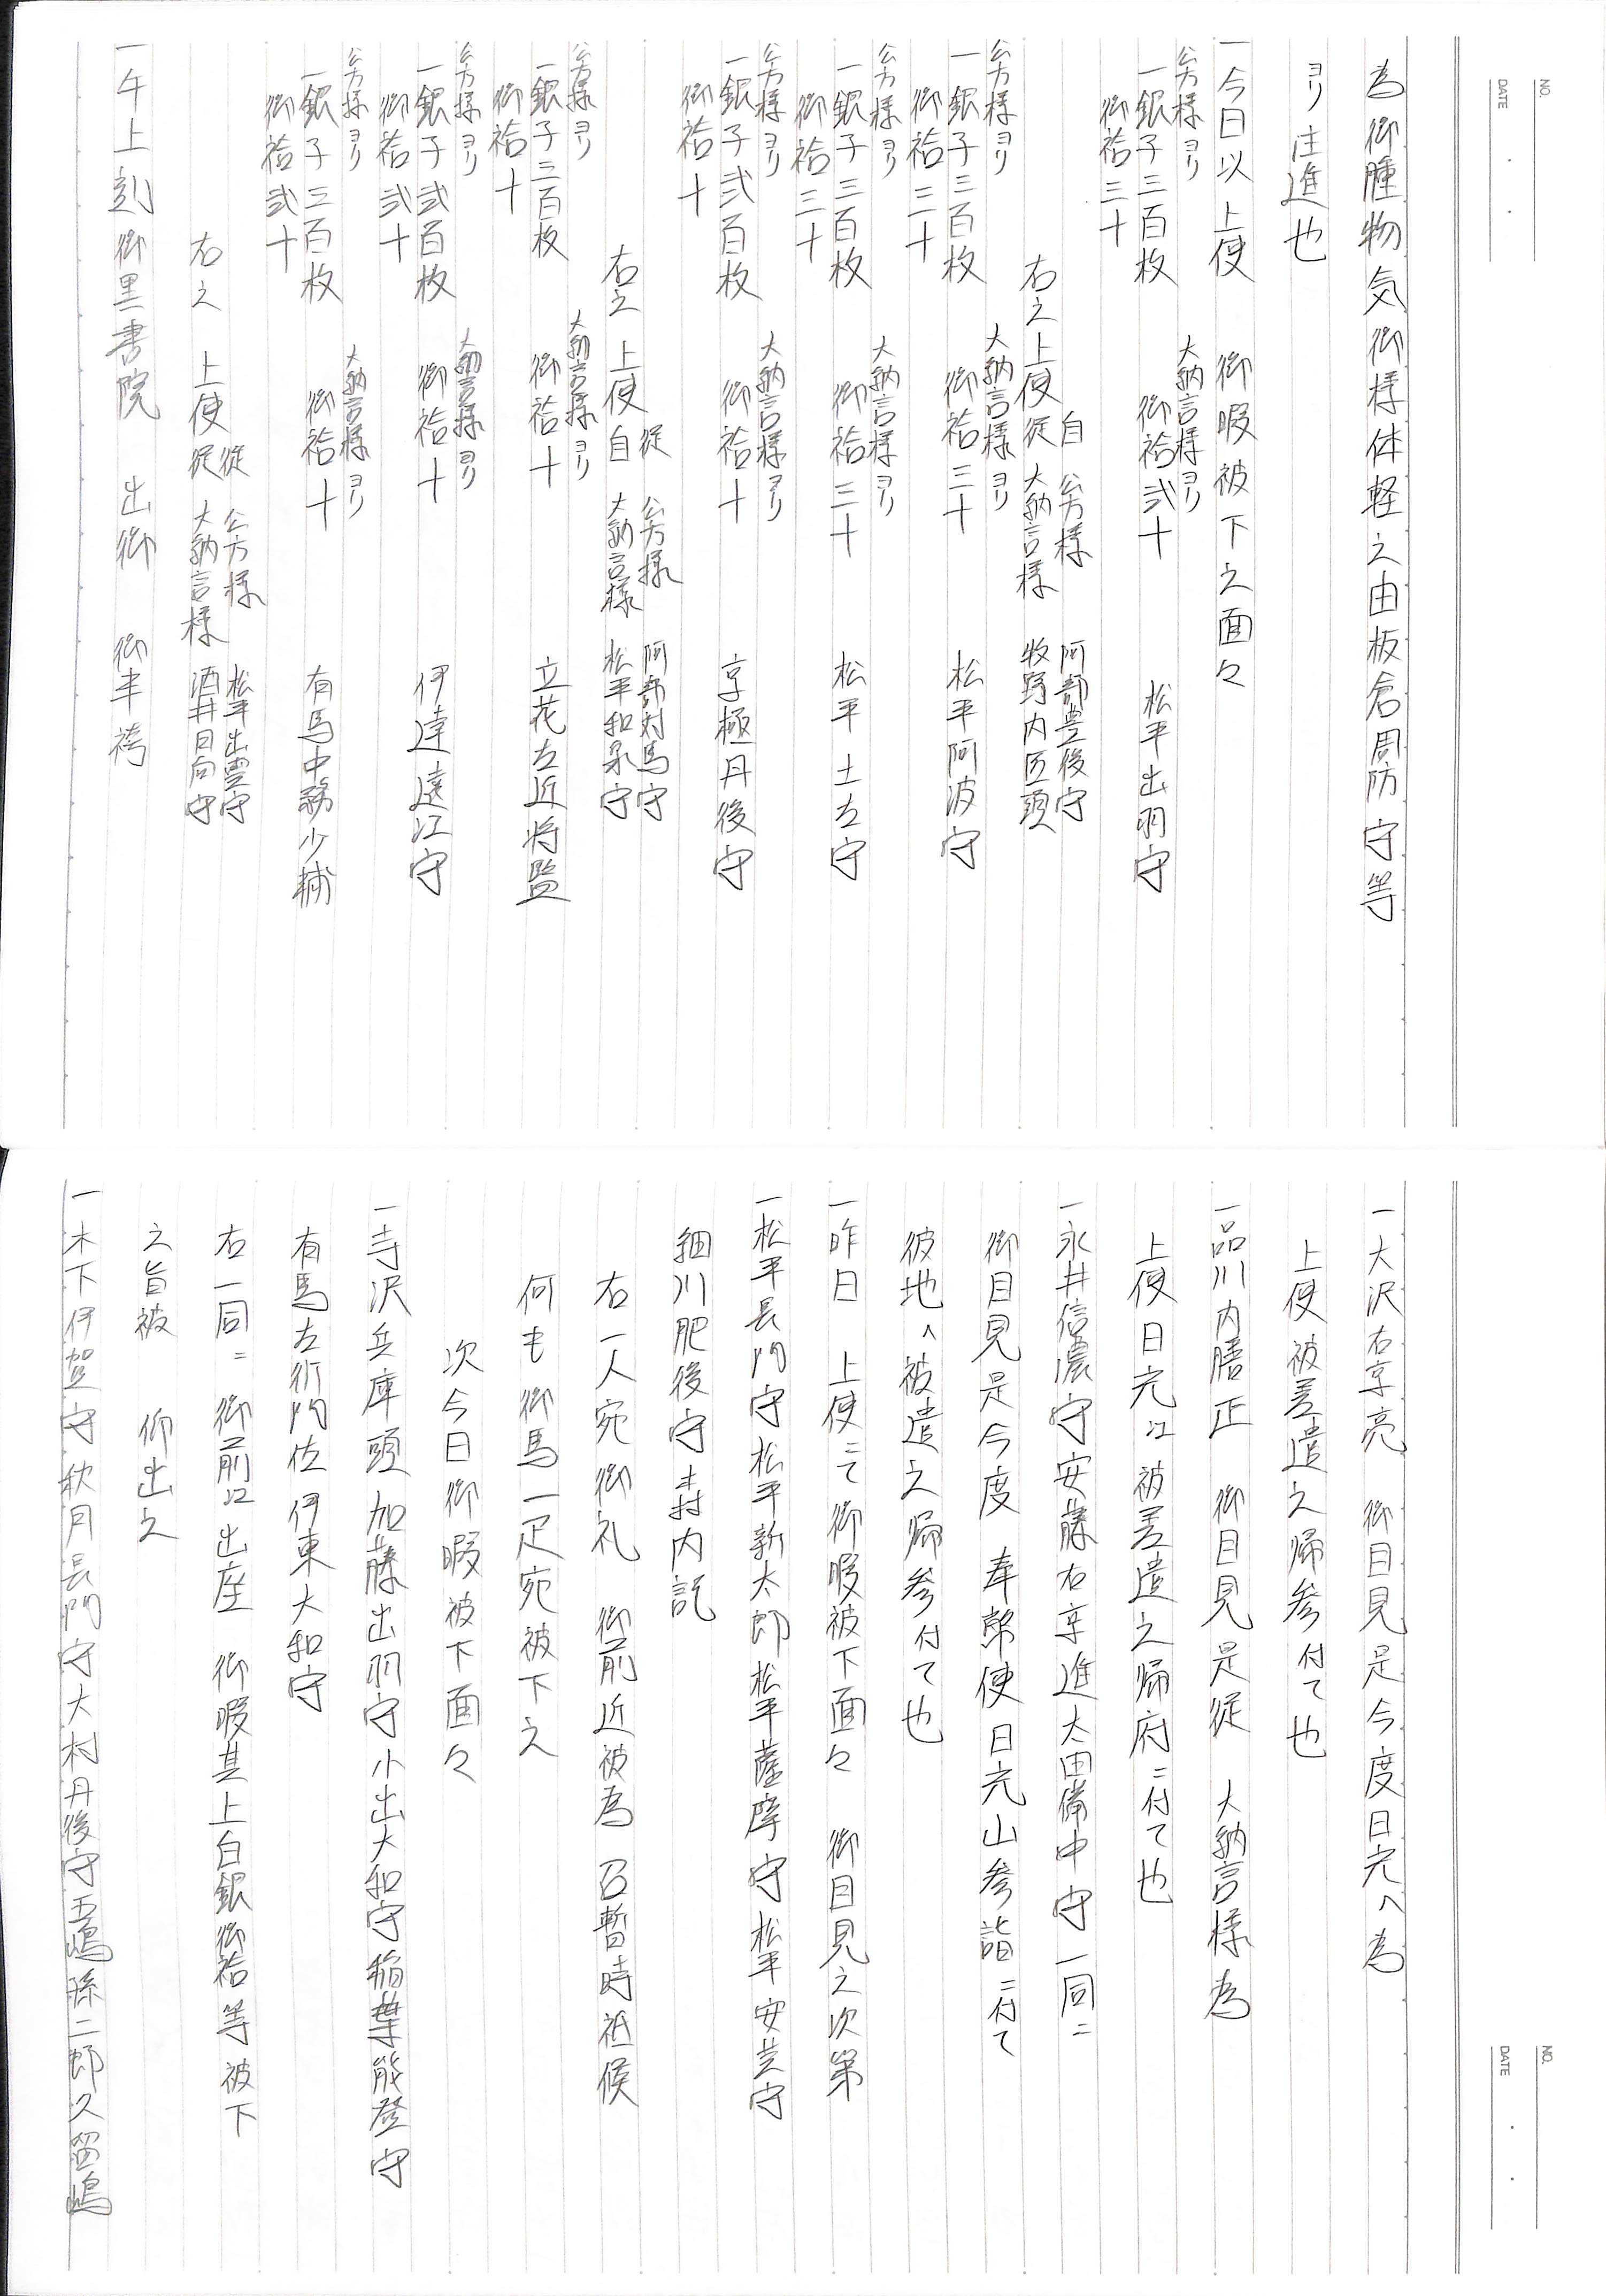 NO.
DATE
為御腫物気御様体軽之由板倉周防守等
ヨリ注進也
一今日以上使 御暇被下之面々
公方様ヨリ 大納言様ヨリ
一銀子三百枚 御袷弐十 松平出羽守
御袷三十
右之上使 自 公方様 阿部豊後守
従 大納言様 牧野内匠頭
公方様ヨリ 大納言様ヨリ
一銀子三百枚 御袷三十 松平阿波守
御袷三十
公方様ヨリ 大納言様ヨリ
一銀子三百枚 御袷三十 松平土左守
御袷三十
公方様ヨリ 大納言様ヨリ
一銀子弐百枚 御袷十 京極丹後守
御袷十
右之 上使 従 公方様 阿部対馬守
自 大納言様 松平和泉守
公方様ヨリ 大納言様ヨリ
一銀子三百枚 御袷十 立花左近将監
御袷十
公方様ヨリ 大納言様ヨリ
一銀子弐百枚 御袷十 伊達遠江守
御袷弐十
公方様ヨリ 大納言様ヨリ
一銀子三百枚 御袷十 有馬中務少輔
御袷弐十
右之 上使 従 公方様 松平出雲守
従 大納言様 酒井日向守
一午上刻御黒書院 出御 御半袴
NO.
DATE
一大沢右京亮 御目見是今度日光へ為
上使被差遣之帰参付て也
一品川内膳正 御目見是従 大納言様為
上使日光江被差遣之帰府ニ付て也
一永井信濃守安藤右京進太田備中守一同ニ
御目見是今度 奉幣使日光山参詣ニ付て
彼地へ被遣之帰参付て也
一昨日 上使ニて御暇被下面々 御目見之次第
一松平長門守松平新太郎松平薩摩守松平安芸守
細川肥後守森内記
右一人宛御礼 御前近被為 召暫時祗候
何も御馬一疋宛被下之
次今日御暇被下面々
一寺沢兵庫頭加藤出羽守小出大和守稲葉能登守
有馬左衛門佐伊東大和守
右一同ニ 御前江出座 御暇其上白銀御袷等被下
之旨被 仰出之
一木下伊賀守秋月長門守大村丹後守五嶋孫二郎久留嶋